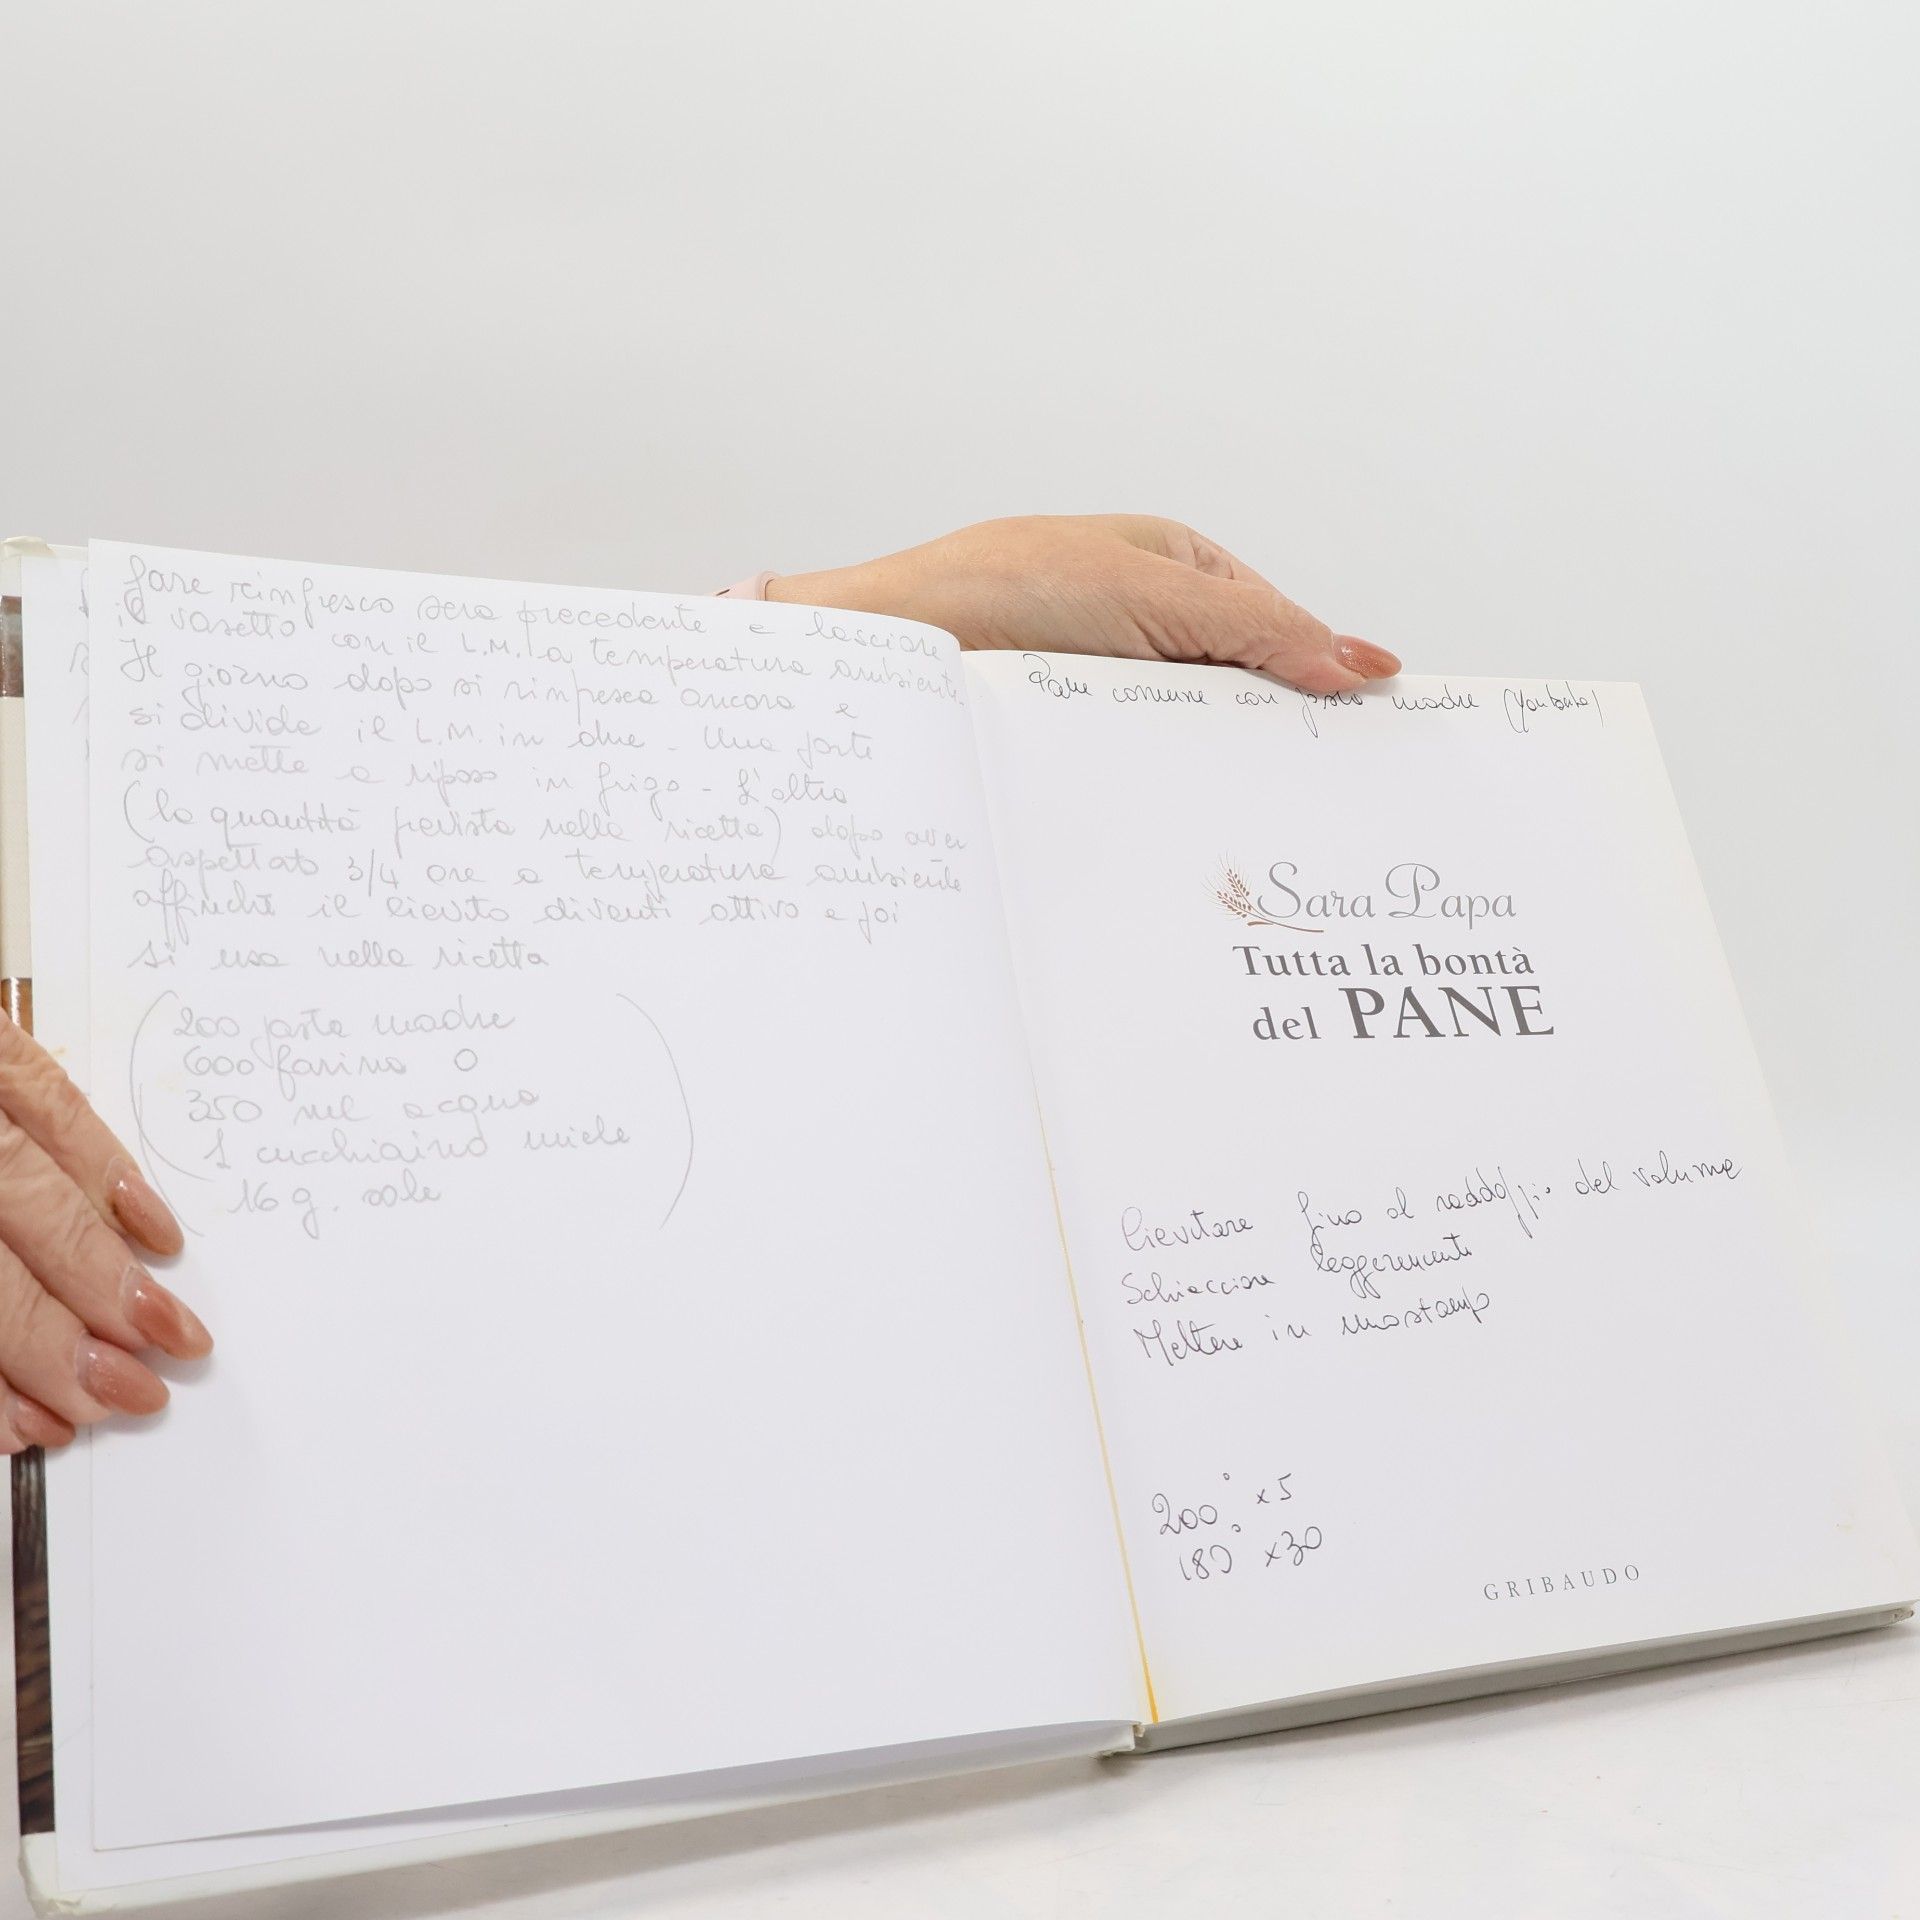 fare rinfresco sera precedente e lasciare
il vasetto con il L.M. a temperatura ambiente.
Il giorno dopo si rinfresca ancora e
si divide il L.M. in due - Una parte
si mette a riposo in frigo - L'altra
(la quantità prevista nella ricetta) dopo aver
aspettato 3/4 ore a temperatura ambiente
affinché il lievito diventi attivo e poi
si usa nella ricetta
(200 pasta madre
600 farina 0
350 ml acqua
1 cucchiaino miele
16 g. sale)
Pane comune con pasta madre (Youtube)
Sara Papa
Tutta la bontà
del PANE
Lievitare fino al raddoppio del volume
Schiacciare leggermente
Mettere in stampo
200° x 5
180° x 30
GRIBAUDO